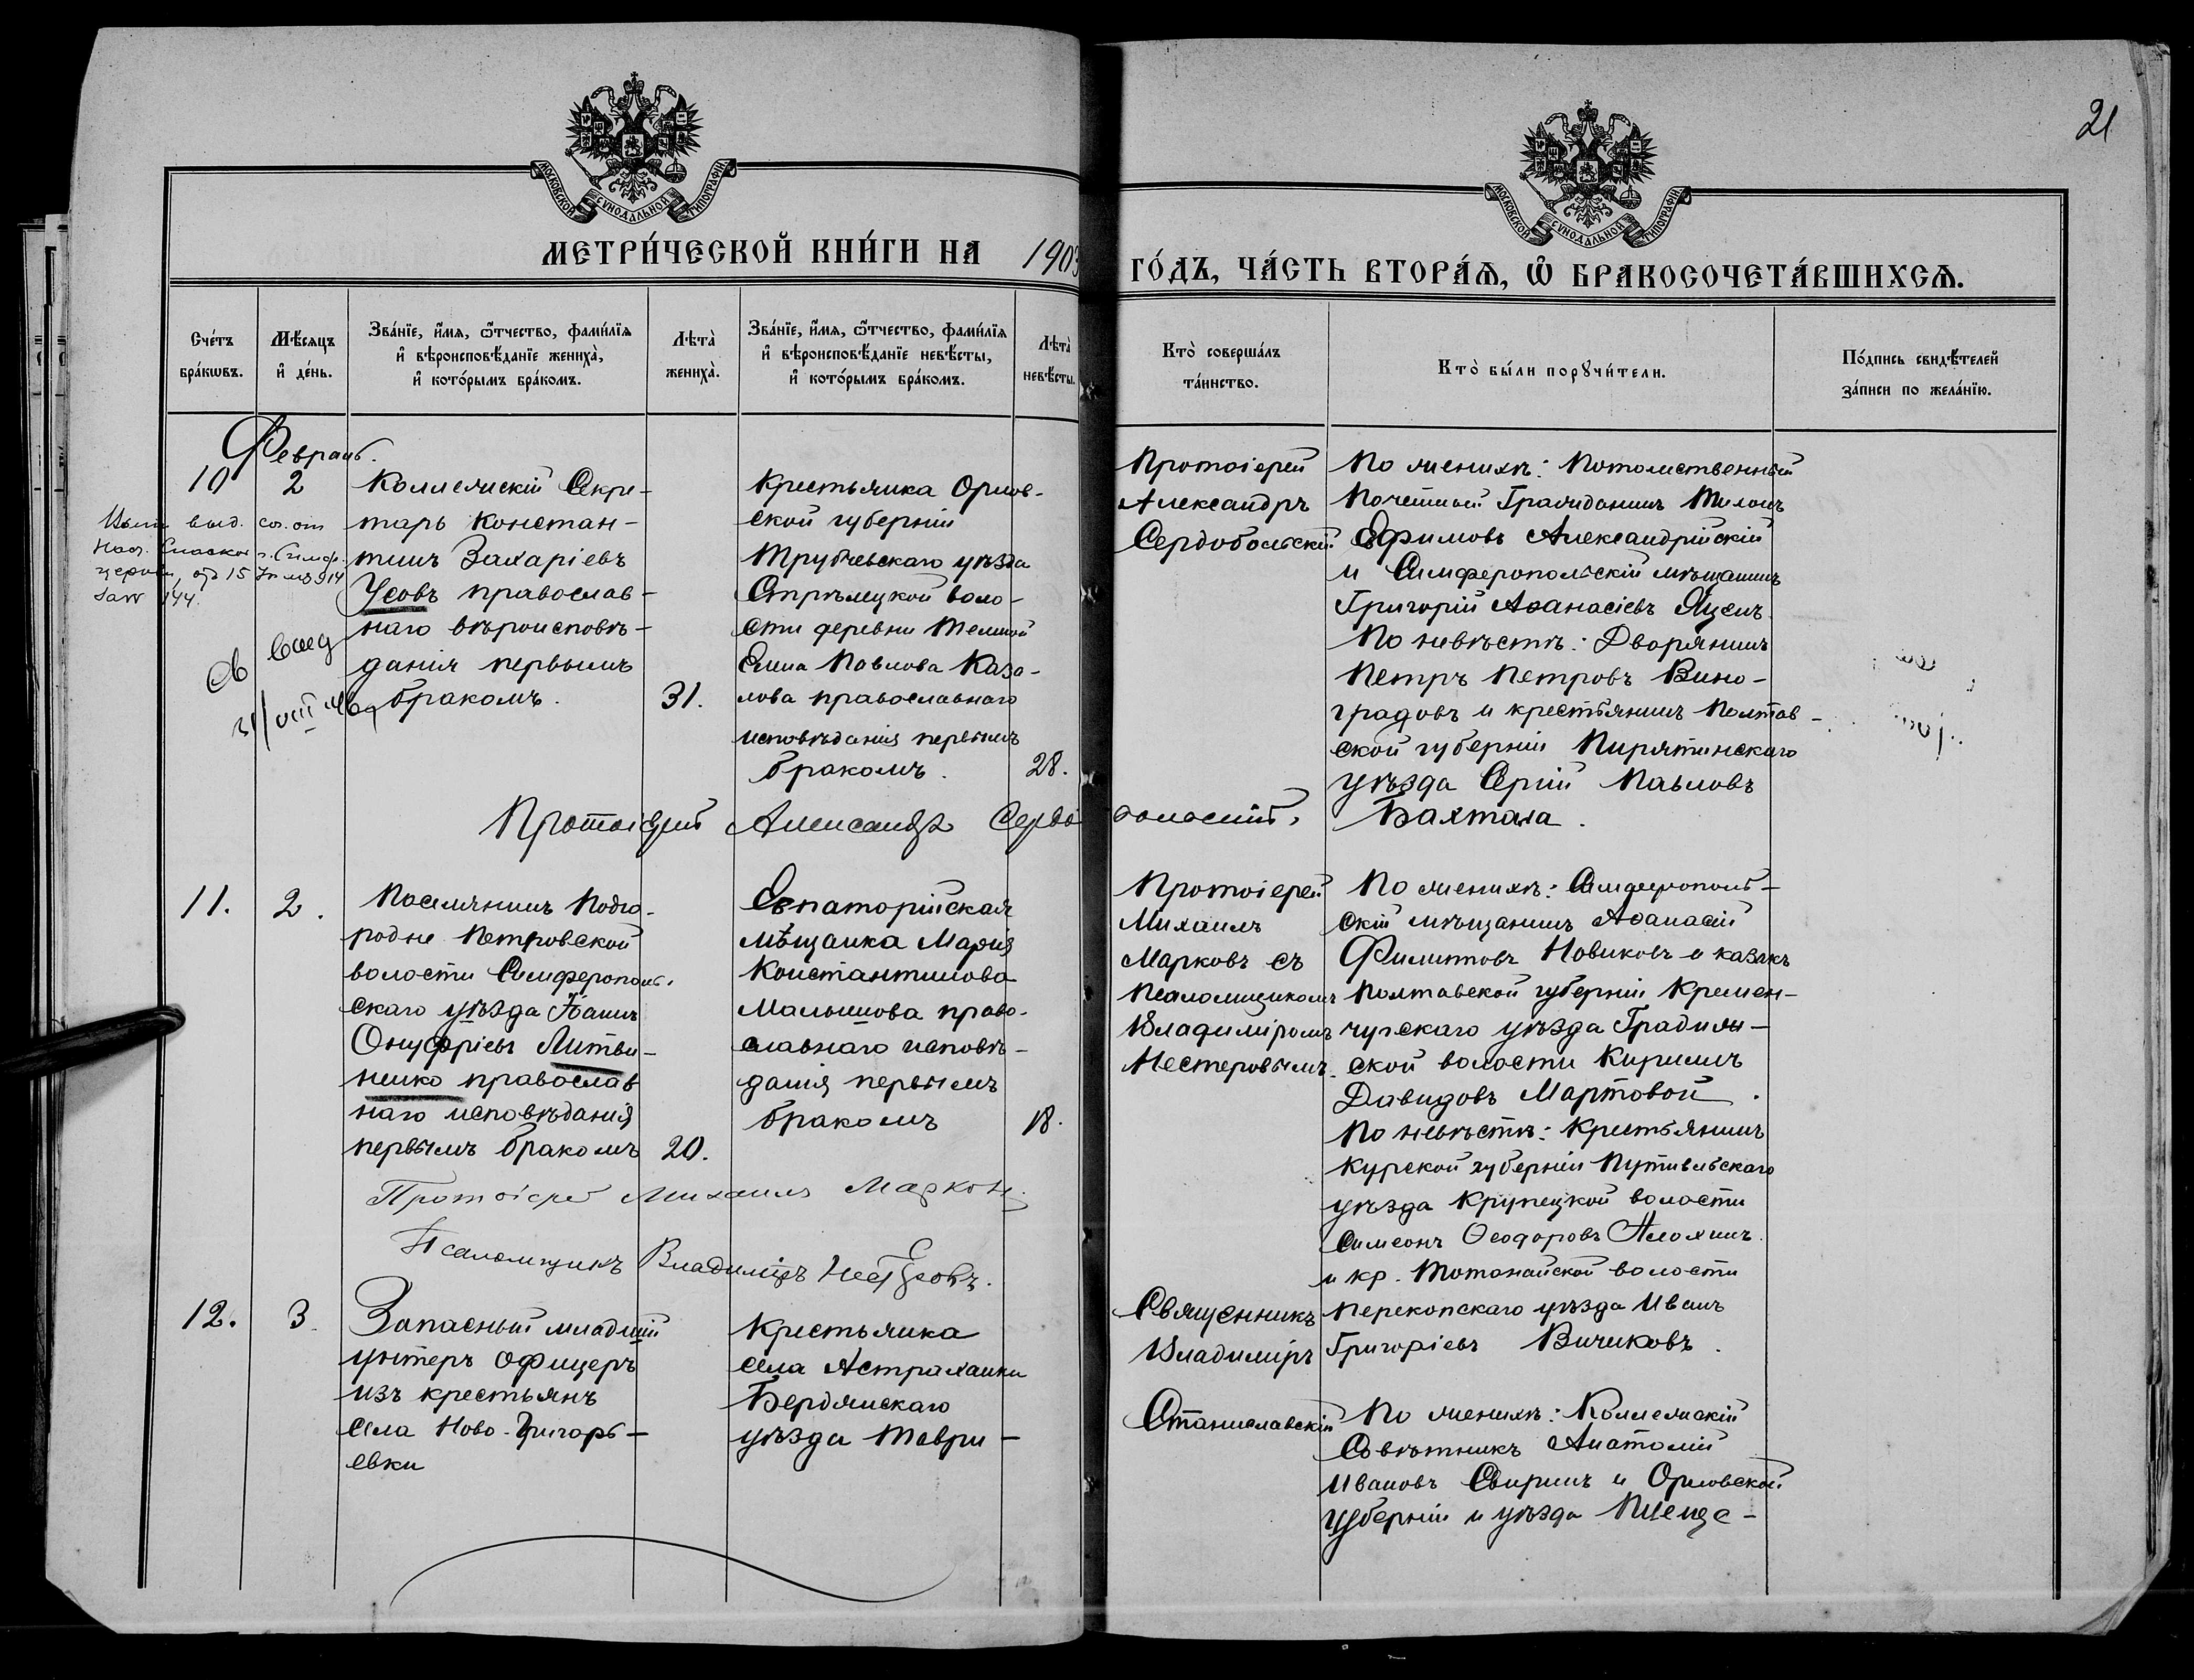 21
МОСКОВСКОЙ СѴНОДАЛЬНОЙ ТИПОГРАФІИ
МОСКОВСКОЙ СѴНОДАЛЬНОЙ ТИПОГРАФІИ
МЕТРИ́ЧЕСКОЙ КНИ́ГИ НА 1903
ГО́ДЪ, ЧА́СТЬ ВТОРА́Ѧ, Ѡ҆ БРАКОСОЧЕТА́ВШИХСѦ.
Сче́тъ бра́кѡвъ.
Мѣ́сѧцъ и҆ де́нь.
Зва́нїе, и҆́мѧ, ѻ҆́тчество, фами́лїѧ
и҆ вѣроисповѣ́данїе жениха̀,
и҆ кото́рымъ бра́комъ.
Лѣ́та̀ жениха̀.
Зва́нїе, и҆́мѧ, ѻ҆́тчество, фами́лїѧ
и҆ вѣроисповѣ́данїе невѣ́сты,
и҆ кото́рымъ бра́комъ.
Лѣ́та̀ невѣ́сты.
Кто̀ соверша́лъ
та́инство.
Кто̀ бы́ли порꙋчи́тели.
По́дпись свидѣ́телей
за́писи по жела́нїю.
Февраль.
10 2
Коллежскій Секре-
тарь Констан-
тинъ Захаріевъ
Усовъ православ-
наго вѣроисповѣ-
данія первымъ
бракомъ.
31.
Крестьянка Орлов-
ской губерніи
Трубчевскаго уѣзда
Стрѣлецкой воло-
сти деревни Телиной
Анна Павлова Каза-
лова православнаго
исповѣданія первымъ
бракомъ.
28.
Протоіерей
Александръ
Сердобольскій.
По женихѣ: Потомственный
Почетный Гражданинъ Тихонъ
Ефимовъ Александрійскій
и Симферопольскій мѣщанинъ
Григорій Аѳанасіевъ Яценъ.
По невѣстѣ: Дворянинъ
Петръ Петровъ Вино-
градовъ и крестьянинъ Полтав-
ской губерніи Пирятинскаго
уѣзда Сергій Павловъ
Бахтала.
Протоіерей Александръ Сердобольскій.
11. 2.
Поселянинъ Подго-
родне Петровской
волости Симферополь-
скаго уѣзда Іоаннъ
Онуфріевъ Литви-
ненко православ
наго исповѣданія
первымъ бракомъ
20.
Евпаторійская
мѣщанка Марія
Константинова
Малышова право-
славнаго исповѣ-
данія первымъ
бракомъ
18.
Протоіерей
Михаилъ
Марковъ съ
псаломщикомъ
Владиміромъ
Нестеровымъ.
По женихѣ: Симферополь-
скій мѣщанинъ Аѳанасій
Филиповъ Новиковъ и казакъ
Полтавской губерніи Кремен-
чугскаго уѣзда Градиж-
ской волости Кириллъ
Давидовъ Мартовой.
По невѣстѣ: Крестьянинъ
Курской губерніи Путивльскаго
уѣзда Крупецкой волости
Симеонъ Ѳеодоровъ Алохинъ.
и кр. Тотанайской волости
Перекопскаго уѣзда Иванъ
Григоріевъ Вичиковъ.
Протоіерей Михаилъ Марковъ
Псаломщикъ Владиміръ Нестеровъ.
12. 3.
Запасный младшій
унтеръ офицеръ
изъ крестьянъ
села Ново-Григорь-
евки
Крестьянка
села Астраханки
Бердянскаго
уѣзда Таври-
Священникъ
Владиміръ
Станиславскій
По женихѣ: Коллежскій
Совѣтникъ Анатолій
Ивановъ Свиринъ и Орловской
губерніи и уѣзда